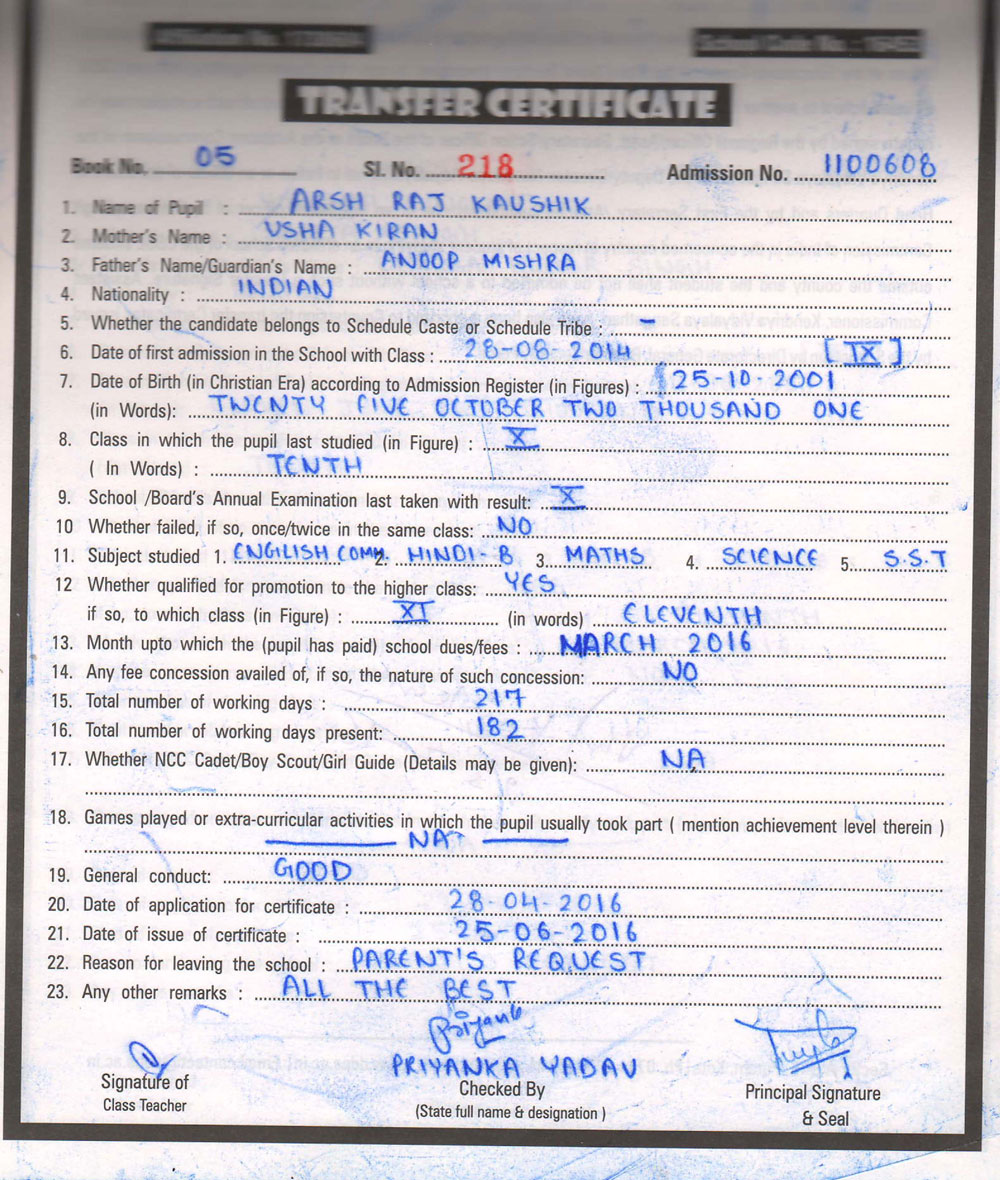 TRANSFER CERTIFICATE
Book No. 05 Sl. No. 218 Admission No. 1100608
1. Name of Pupil : ARSH RAJ KAUSHIK
2. Mother's Name : USHA KIRAN
3. Father's Name/Guardian's Name : ANOOP MISHRA
4. Nationality : INDIAN
5. Whether the candidate belongs to Schedule Caste or Schedule Tribe : –
6. Date of first admission in the School with Class : 28-08-2014 [IX]
7. Date of Birth (in Christian Era) according to Admission Register (in Figures) : 25-10-2001
(in Words): TWENTY FIVE OCTOBER TWO THOUSAND ONE
8. Class in which the pupil last studied (in Figure) : X
( In Words) : TENTH
9. School /Board's Annual Examination last taken with result: X
10 Whether failed, if so, once/twice in the same class: NO
11. Subject studied 1. ENGILISH COMM. 2. HINDI-B 3. MATHS 4. SCIENCE 5. S.S.T
12 Whether qualified for promotion to the higher class: YES
if so, to which class (in Figure) : XI (in words) ELEVENTH
13. Month upto which the (pupil has paid) school dues/fees : MARCH 2016
14. Any fee concession availed of, if so, the nature of such concession: NO
15. Total number of working days : 217
16. Total number of working days present: 182
17. Whether NCC Cadet/Boy Scout/Girl Guide (Details may be given): NA
18. Games played or extra-curricular activities in which the pupil usually took part ( mention achievement level therein )
NA
19. General conduct: GOOD
20. Date of application for certificate : 28-04-2016
21. Date of issue of certificate : 25-06-2016
22. Reason for leaving the school : PARENT'S REQUEST
23. Any other remarks : ALL THE BEST
Priyanka
PRIYANKA YADAV
Signature of Checked By Principal Signature
Class Teacher (State full name & designation ) & Seal